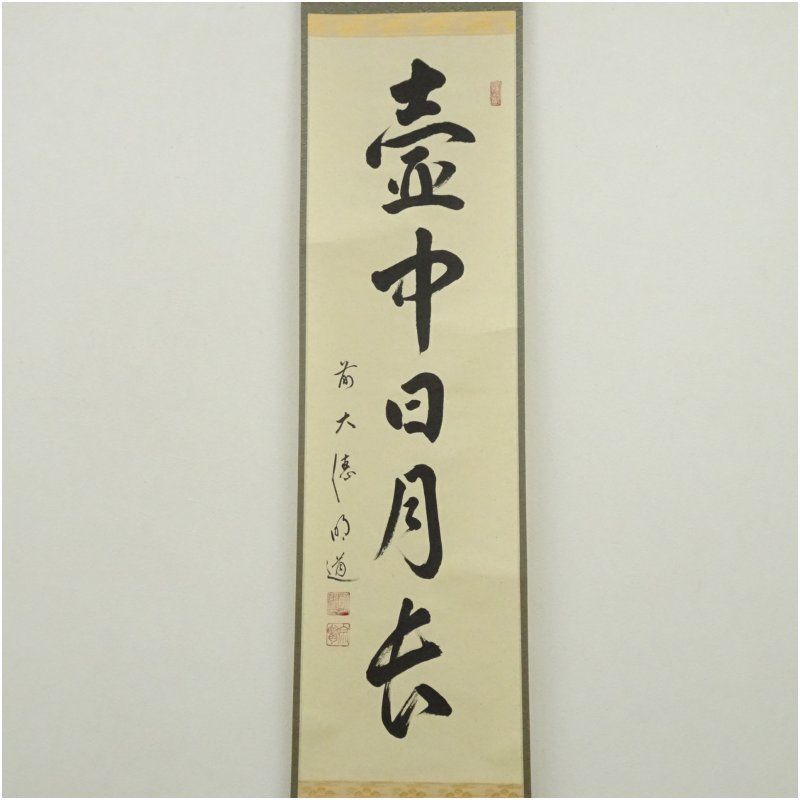 壺中日月長
前大徳明道